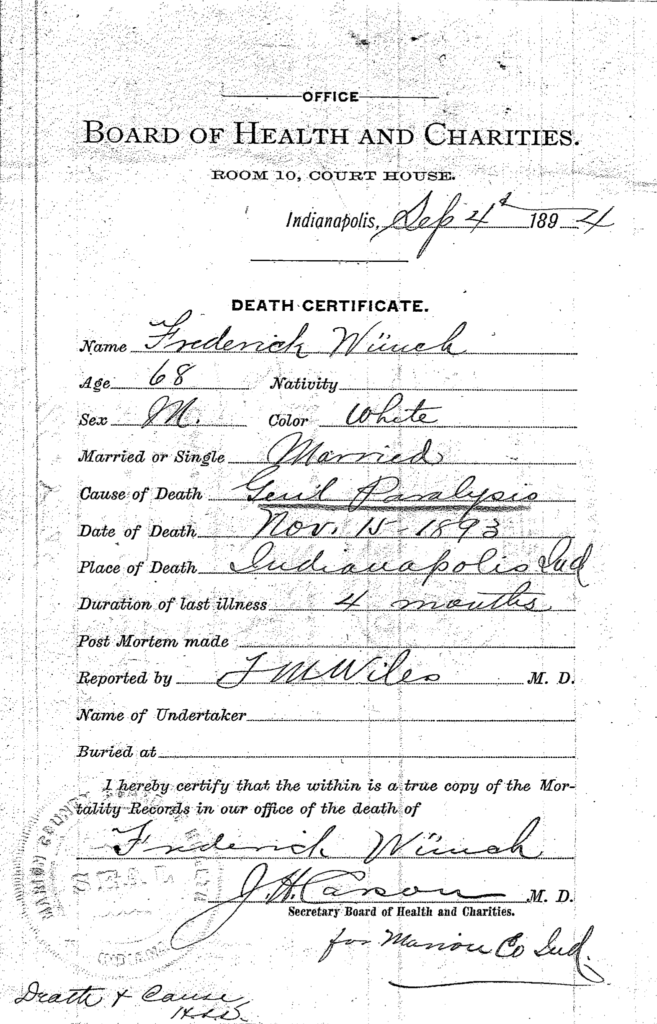 OFFICE
BOARD OF HEALTH AND CHARITIES.
ROOM 10, COURT HOUSE.
Indianapolis, Sep 4th 1894
DEATH CERTIFICATE.
Name Frederick Wünch
Age 68 Nativity
Sex M. Color White
Married or Single Married
Cause of Death Genl Paralysis
Date of Death Nov. 15 1893
Place of Death Indianapolis Ind
Duration of last illness 4 months
Post Mortem made
Reported by J M Wiles M. D.
Name of Undertaker
Buried at
I hereby certify that the within is a true copy of the Mor-
tality Records in our office of the death of
Frederick Wünch
J. H. Carson M. D.
Secretary Board of Health and Charities.
for Marion Co Ind.
MARION COUNTY
SEAL
INDIANA
Death & Cause